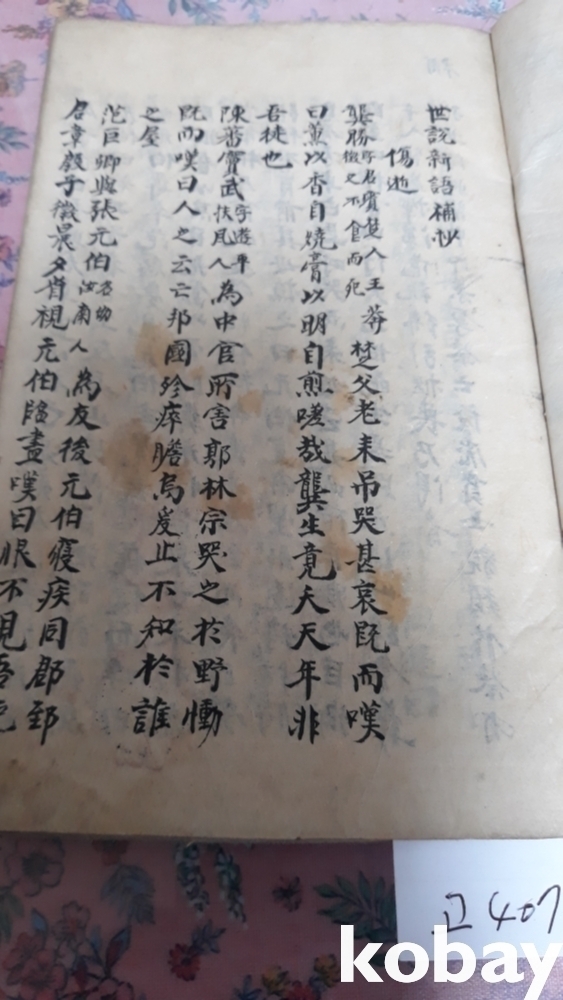 世說新語補抄
傷逝
龔勝字君賓楚人王莽徵之不食而死楚父老來吊哭甚哀旣而嘆
曰薰以香自燒膏以明自煎嗟哉龔生竟夭天年非
吾徒也
陳蕃竇武字遊平扶風人為中官所害郭林宗哭之於野慟
旣而嘆曰人之云亡邦國殄瘁瞻烏爰止不知於誰
之屋
范巨卿與張元伯名劭汝南人為友後元伯寢疾同郡郅
君章殷子徵晨夕省視元伯臨盡嘆曰恨不見吾死
고 407
kobay